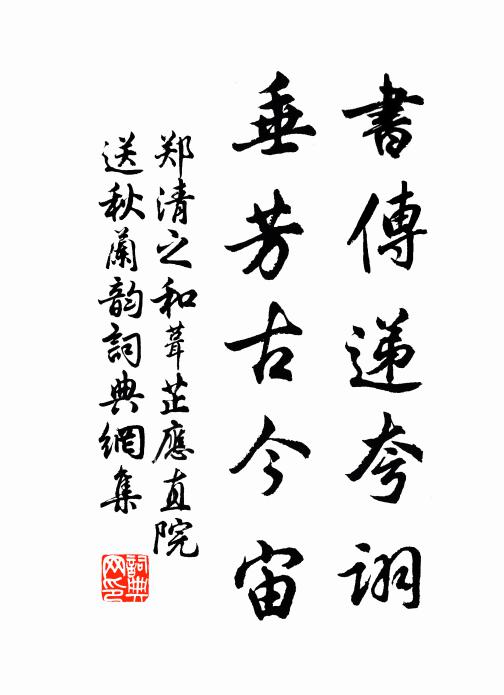 書傳遞夸詡
垂芳古今宙
郑清之和葺芷應直院
送秋蘭韵詞典網集
詞典网印